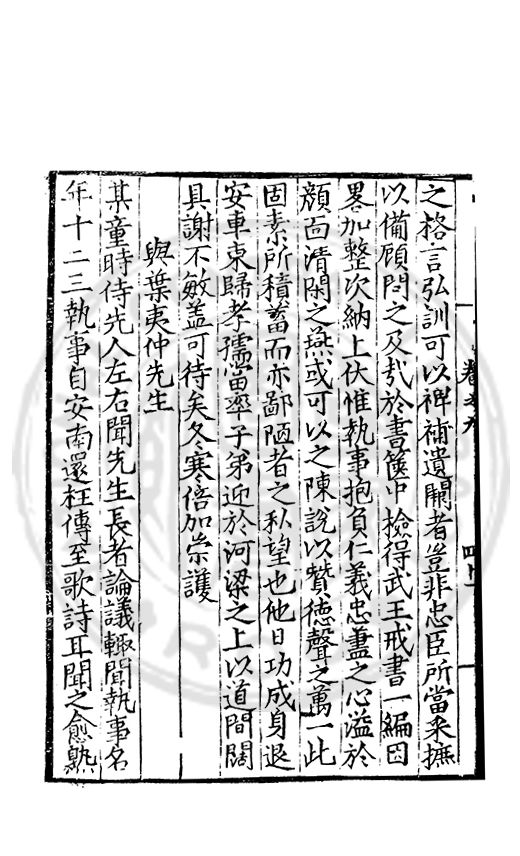 之格言弘訓可以裨補遺闕者豈非忠臣所當采摭
以備顧問之及㢤於書篋中檢得武王戒書一編因
畧加整次納上伏惟執事抱負仁義忠藎之心溢於
顔面清閑之燕或可以之陳說以贊德聲之萬一此
固素所積蓄而亦鄙陋者之私望也他日功成身退
安車東歸孝孺當率子弟迎於河梁之上以道間闊
具謝不敏盖可待矣冬寒倍加崇護
與葉夷仲先生
某童時侍先人左右聞先生長者論議輙聞執事名
年十二三執事自安南還枉傳至歌詩耳聞之愈熟
卷之九